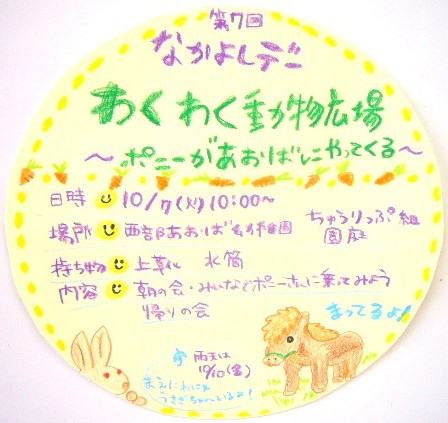 第7回
なかよしデー
わくわく動物広場
～ポニーがあおばにやってくる～
日時 10/7(火)10:00～
場所 西部あおば幼稚園 ちゅうりっぷ組
園庭
持ち物 上靴 水筒
内容 朝の会・みんなでポニーさんに乗ってみよう
帰りの会
まってるよ!
雨天は
10/10(金)
うさぎちゃんもいるよ!